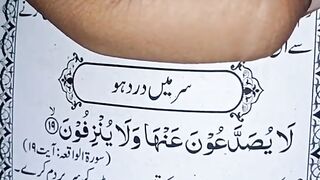 سر میں درد ہو
لَا يُصَدَّعُوْنَ عَنْهَا وَلَا يُنْزِفُوْنَ ۙ﴿۱۹﴾
(سورۃ الواقعہ: آیت ۱۹)